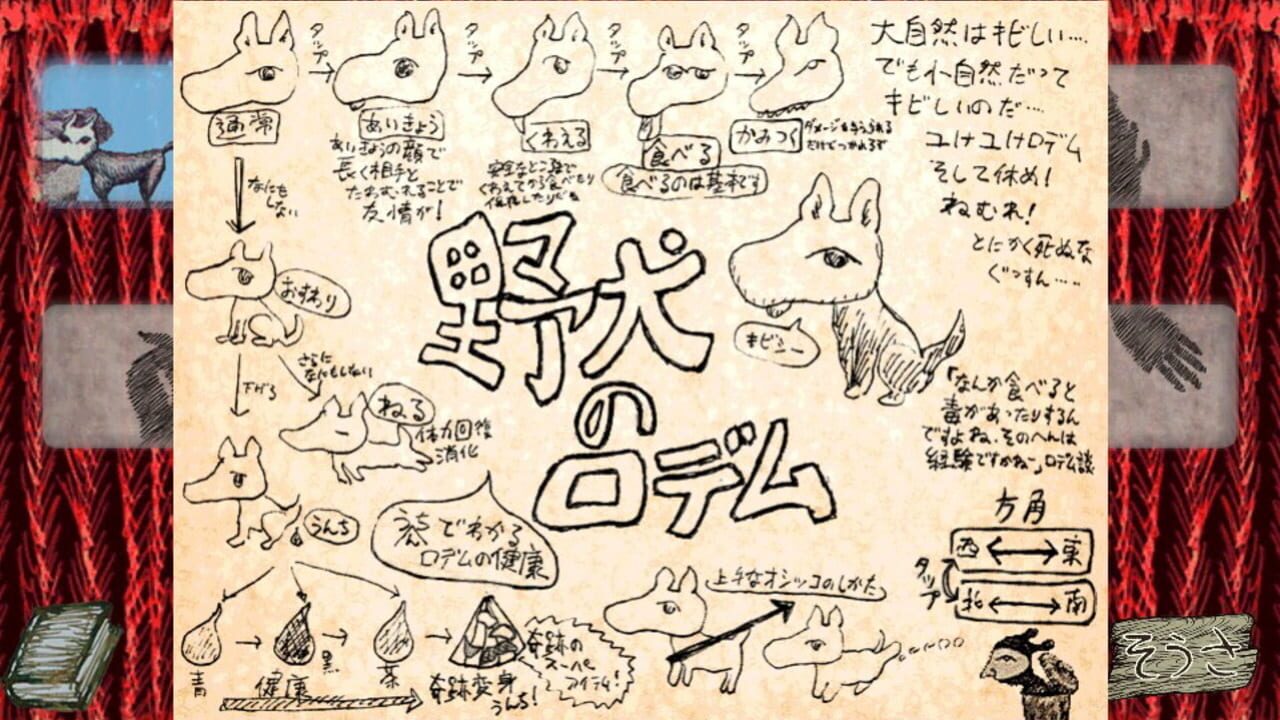 タップ
タップ
タップ
タップ
通常
あいきょう
くわえる
食べる
かみつく
ダメージを与えられる
だけどつかれるぞ
大自然はキビしい…
でも小自然だって
キビしいのだ…
ユけユけロデム
そして休め!
ねむれ!
とにかく死ぬな
ぐっすん……
あいきょうの顔で
長く相手と
たわむれることで
友情が!
安全なとこ迄で
くわえてから食べたり
食べるのは基本です
なにも
しない
おすわり
野犬
の
ロデム
キビシー
下げる
さらに
なにもしない
ねる
体力回復
消化
「なんか食べると
毒があったりするん
ですよね、そのへんは
経験ですかねー」ロデム談
うんち
うんちでわかる
ロデムの健康
方角
西 東
タップ
北 南
上手なオシッコのしかた
青
健康
黒
茶
奇跡変身
うんち!
奇跡の
スーパー
アイテム!
そうさ